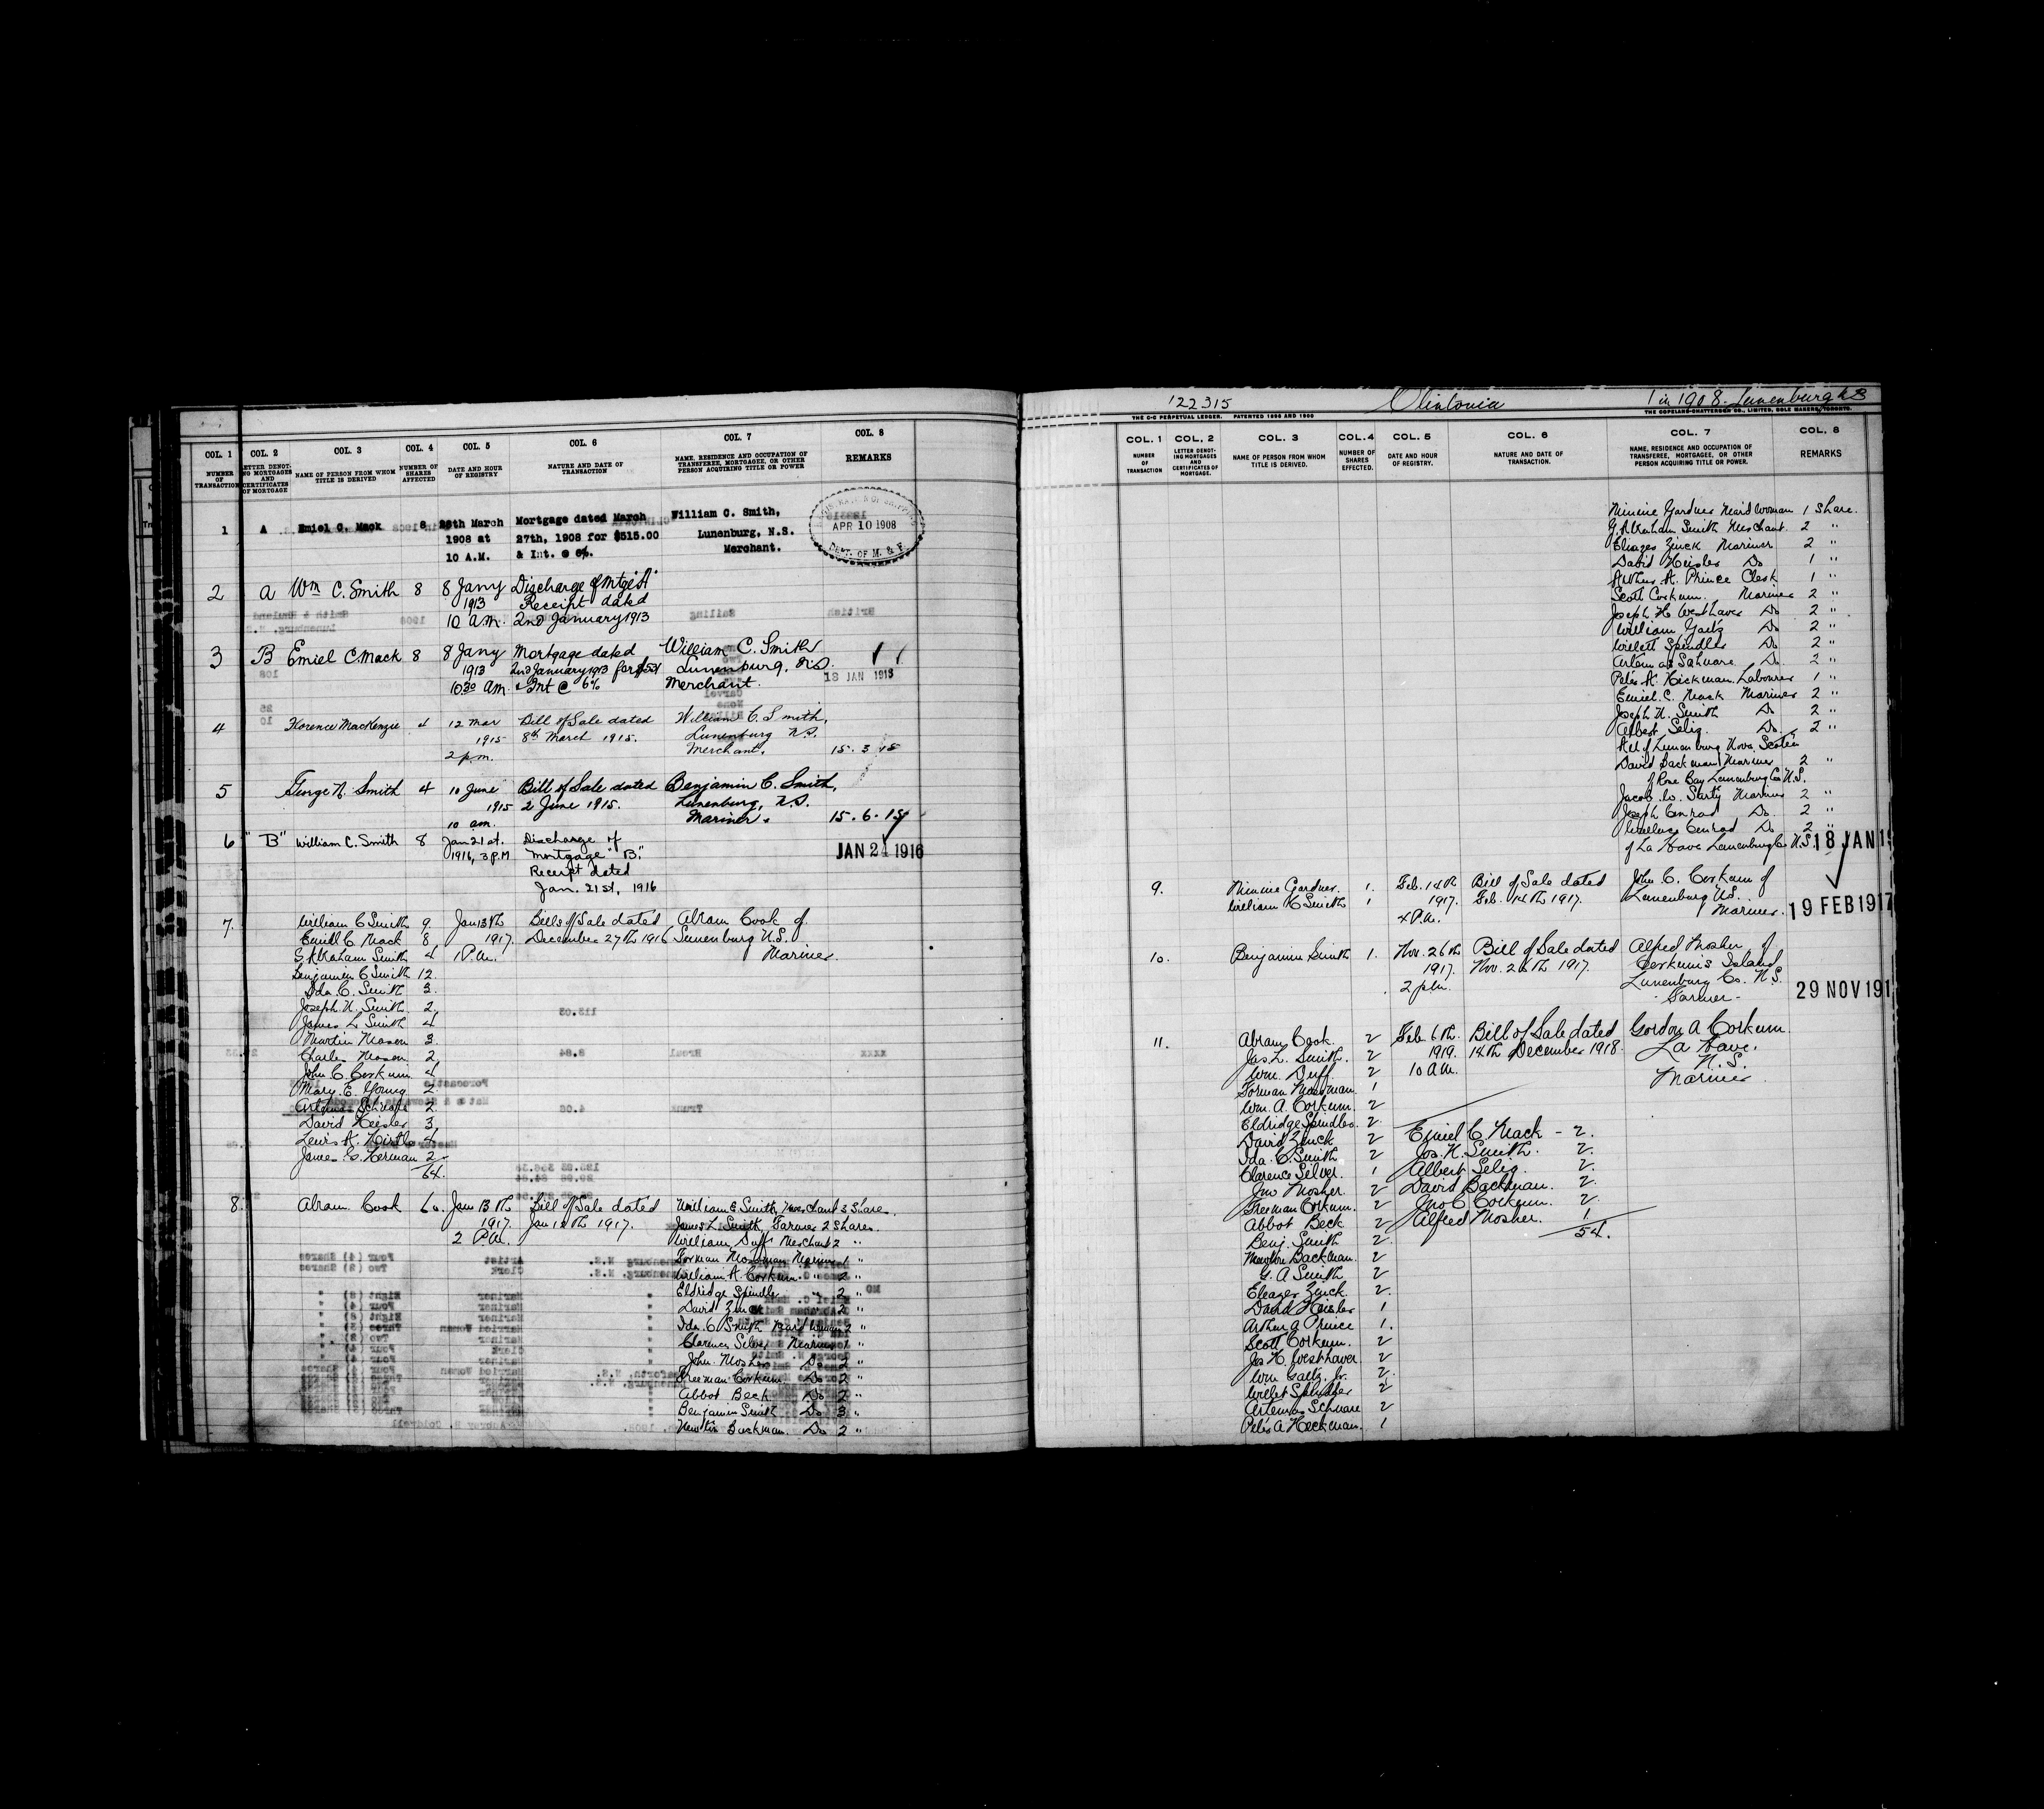 COL. 1 COL. 2 COL. 3 COL. 4 COL. 5 COL. 6 COL. 7 COL. 8
NUMBER OF TRANSACTION
LETTER DENOTING MORTGAGES AND CERTIFICATES OF MORTGAGE
NAME OF PERSON FROM WHOM TITLE IS DERIVED
NUMBER OF SHARES AFFECTED
DATE AND HOUR OF REGISTRY
NATURE AND DATE OF TRANSACTION
NAME, RESIDENCE AND OCCUPATION OF TRANSFEREE, MORTGAGEE, OR OTHER PERSON ACQUIRING TITLE OR POWER
REMARKS
1 A Emiel C. Mack 8 28th March Mortgage dated March William C. Smith,
1908 at 27th, 1908 for $515.00 Lunenburg, N.S.
10 A.M. & Int. @ 6%. Merchant.
APR 10 1908
DEPT. OF M. & F.
2 A Wm C. Smith 8 8 Jany Discharge of Mtge "A"
1913 Receipt dated
10 A.M. 2nd January 1913
3 B Emiel C Mack 8 8 Jany Mortgage dated William C. Smith
1913 2nd January 1913 for Lunenburg, N.S.
10 30 AM. & Int @ 6% Merchant.
13 JAN 1913
4 Florence MacKenzie 4 12 Mar Bill of Sale dated William C. Smith,
1915 8th March 1915. Lunenburg N.S.
2 p.m. Merchant. 15.3.15
5 George N. Smith 4 10 June Bill of Sale dated Benjamin C. Smith,
1915 2 June 1915. Lunenburg, N.S.
10 am. Mariner. 15.6.15
6 "B" William C. Smith 8 Jan 21st. Discharge of
1916, 3 P.M Mortgage "B."
Receipt dated
Jan. 21st, 1916
JAN 24 1916
7. William C Smith 9 Jan 13th Bills of Sale dated Abram Cook of
Emiel C Mack 8 1917. December 27th 1916 Lunenburg N.S.
G. Abraham Smith 4 1 P.M. Mariner
Benjamin C Smith 12.
Ida. C. Smith 3.
Joseph N. Smith 2.
James L Smith 4
Martin Mason 3
Charles Mason 2
John C. Corkum 4
Mary. E. Young 2
Artemas Schnare 2
David Heisler 3
Lewis A. Hirtle 4
James G. Herman 2
64.
8. Abram Cook 60. Jan 13th Bill of Sale dated William C Smith, Merchant 3 Share
1917. Jan 12th 1917. James L. Smith, Farmer 2 Shares.
2 P.M. William Duff Merchant 2 "
Forman Mossman Mariner 1 "
William A. Corkum " 2 "
Eldridge Spindler " 2 "
David Zinck 2 "
Ida. C Smith Mard Woman 2 "
Clarence Silver Mariner 1 "
John. Mosher Do 2 "
Freeman Corkum Do 2 "
Abbot Beck Do 2 "
Benjamin Smith Do 3 "
Newton Backman. Do 2 "
122315 Clintonia 1 in 1908. Lunenburg N.S
THE C-C PERPETUAL LEDGER. PATENTED 1896 AND 1900
THE COPELAND-CHATTERSON CO., LIMITED, SOLE MAKERS, TORONTO.
COL. 1 COL. 2 COL. 3 COL. 4 COL. 5 COL. 6 COL. 7 COL. 8
NUMBER OF TRANSACTION
LETTER DENOTING MORTGAGES AND CERTIFICATES OF MORTGAGE.
NAME OF PERSON FROM WHOM TITLE IS DERIVED.
NUMBER OF SHARES EFFECTED.
DATE AND HOUR OF REGISTRY.
NATURE AND DATE OF TRANSACTION.
NAME, RESIDENCE AND OCCUPATION OF TRANSFEREE, MORTGAGEE, OR OTHER PERSON ACQUIRING TITLE OR POWER.
REMARKS
Minnie Gardner Mar'd Woman 1 Share.
G. Abraham Smith Merchant. 2 "
Eleazer Zinck Mariner 2 "
David Heisler Do 1 "
Arthur A. Prince Clerk 1 "
Scott Corkum. Mariner 2 "
Joseph H. Westhaver Do 2 "
William Gaetz Do 2 "
Willett Spindler Do 2 "
Artemas Schnare. Do 2 "
Peter A. Hickman. Labourer 1 "
Emiel C. Mack Mariner 2 "
Joseph N. Smith Do 2 "
Albert Selig. Do. 2 "
All of Lunenburg Nova Scotia
David Backman Mariner 2 "
of Rose Bay Lunenburg Co N.S.
Jacob. W. Mariner 2 "
Joseph Conrad Do. 2 "
Wallace Conrad Do 2 "
of La Have Lunenburg Co N.S.
18 JAN 19
9. Minnie Gardner. 1. Feb. 14th Bill of Sale dated John C. Corkum of
William C Smith 1 1917. Feb. 14th 1917. Lunenburg N.S.
4 P.M. Mariner.
19 FEB 1917
10. Benjamin Smith 1. Nov. 26th Bill of Sale dated Alfred Mosher of
1917. Nov. 26th 1917. Corkum's Island
2 p.m. Lunenburg Co. N.S.
Farmer -
29 NOV 191
11. Abram Cook. 2 Feb 6th. Bill of Sale dated Gordon A Corkum.
Jas. L. Smith. 2 1919. 14th December 1918. La Have.
Wm. Duff. 2 10 AM. N.S.
Forman Mossman. 1 Mariner.
Wm. A. Corkum. 2
Eldridge Spindler. 2
David Zinck 2 Emiel C. Mack - 2.
Ida. C. Smith 2 Jos. N. Smith. 2.
Clarence Silver. 1 Albert Selig. 2.
Jno Mosher 2 David Backman. 2.
Freeman Corkum. 2 Jno C Corkum. 2
Abbot Beck 2 Alfred Mosher. 1
Benj. Smith 2 54.
Newton Backman. 2
G. A Smith 2
Eleazer Zinck. 2.
David Heisler 1
Arthur A Prince 1.
Scott Corkum. 2
Jos H. Westhaver. 2
Wm Gaetz. Jr. 2.
Willet Spindler 2
Artemas Schnare 2
Peter A Heckman. 1